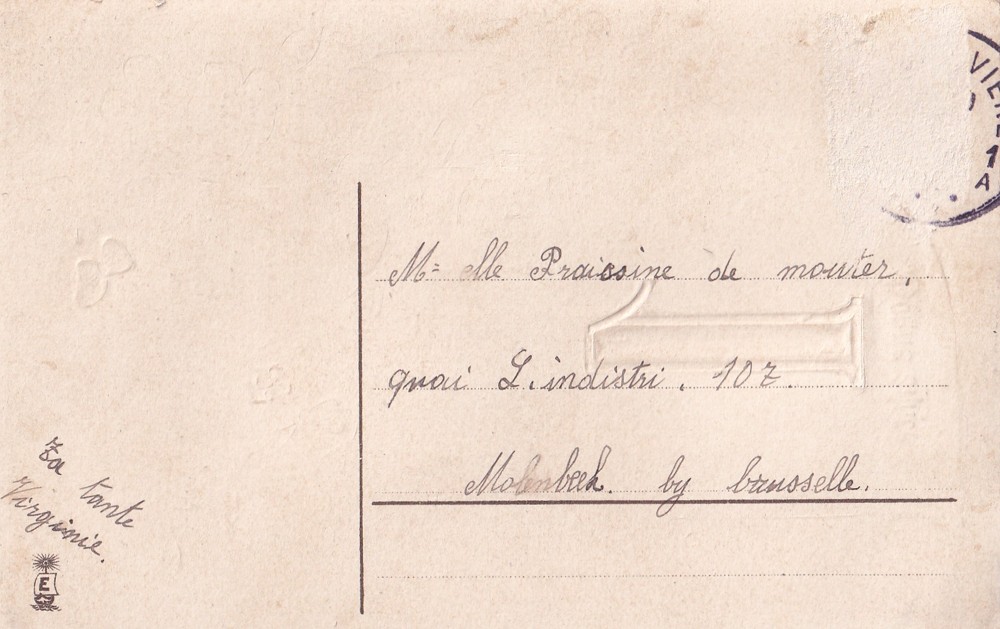 VIER
1
A
M= elle Praissine de mouter,
quai L. indistri. 107.
Molenbeek. by brusselle.
Ta tante
Virginie.
E